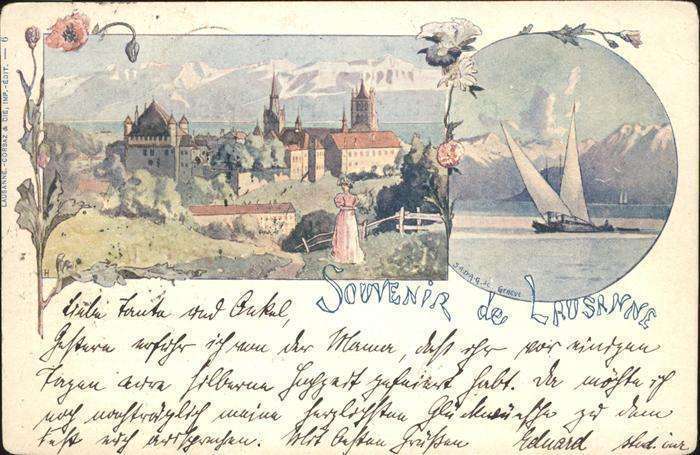 LAUSANNE.-CORBAZ & CIE, IMP.-ÉDIT. — 6
SOUVENIR de LAUSANNE
Liebe Tante und Onkel,
Gestern erfuhr ich von der Mama, daß ihr vor einigen
Tagen eure silberne Hochzeit gefeiert habt. Da möchte ich
noch nachträglich meine herzlichsten Glückwünsche zu dem
Fest euch aussprechen. Mit besten Grüßen Eduard stud. iur.